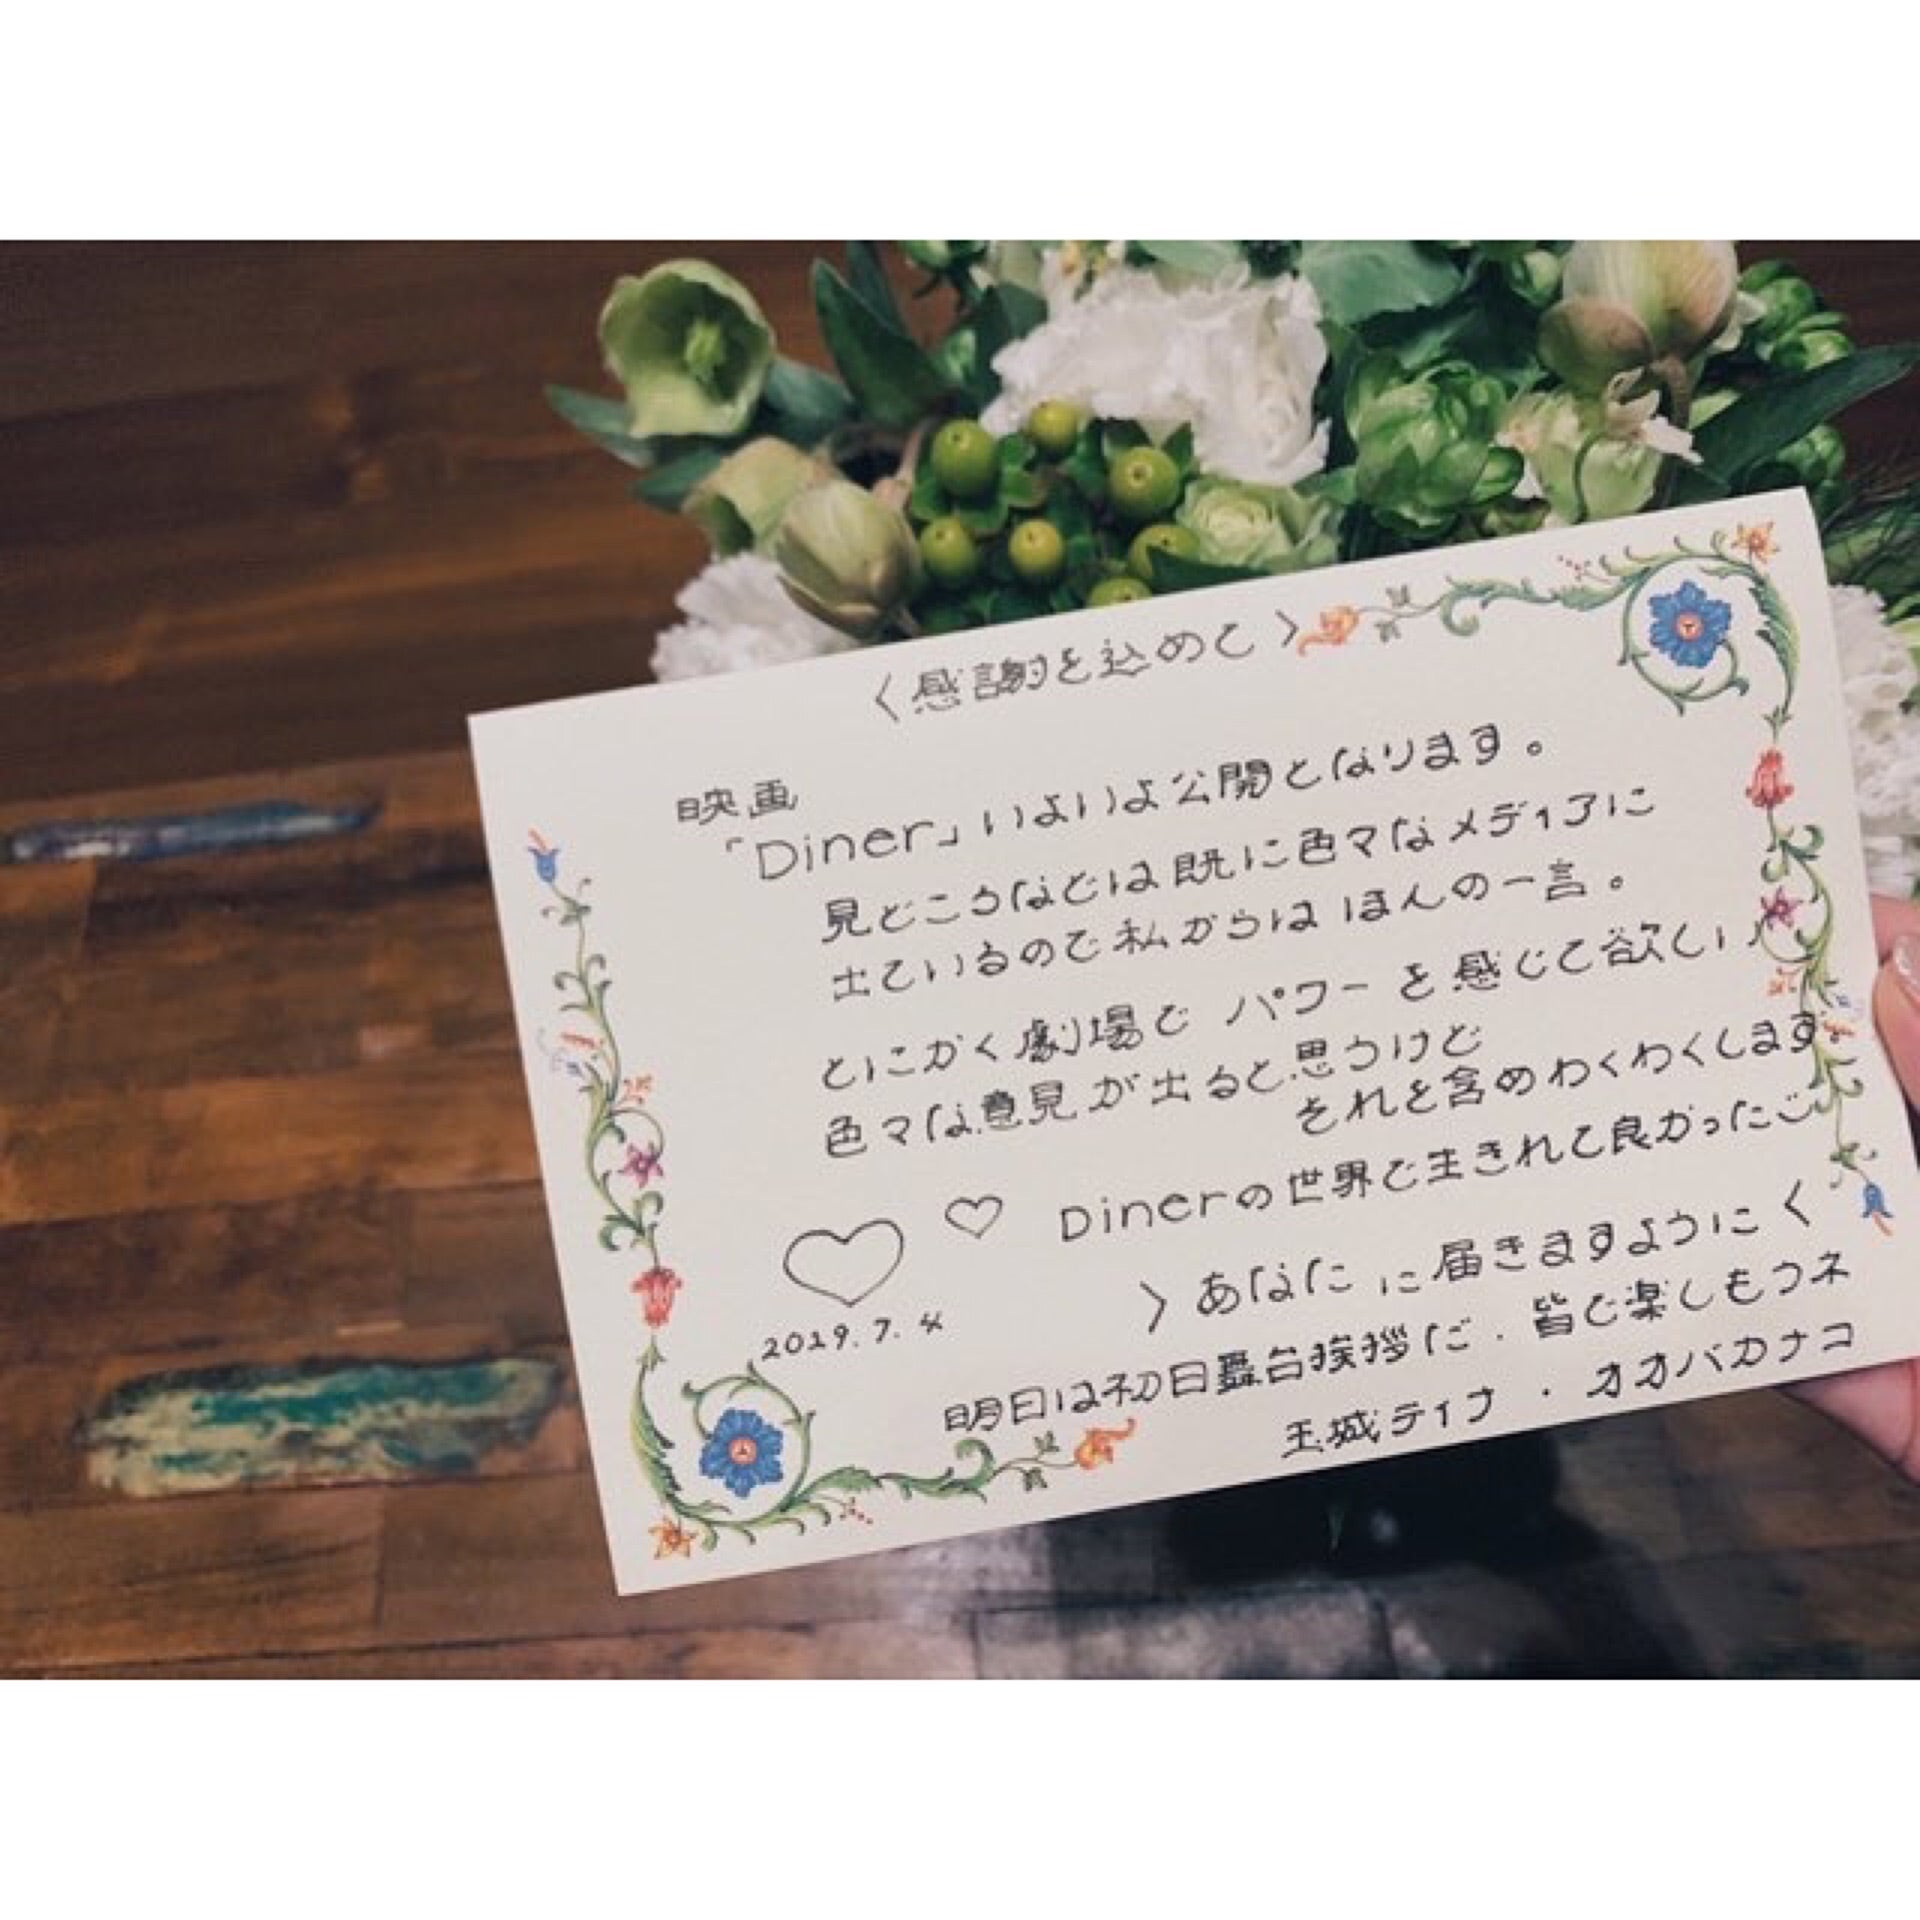 〈感謝を込めて〉
映画
「Diner」いよいよ公開となります。
見どころなどは既に色々なメディアに
出ているので私からは ほんの一言。
とにかく劇場で パワーを感じて欲しい
色々な意見が出ると思うけど
それを含めわくわくします
Dinerの世界で生きれて良かった
〉あなたに届きますように〈
2019.7.4
明日は初日舞台挨拶だ.皆で楽しもうネ
玉城ティナ・オオバカナコ